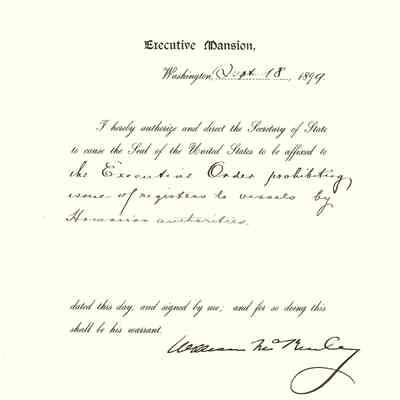 Executive Mansion,
Washington, Sept. 18, 1899.
I hereby authorize and direct the Secretary of State
to cause the Seal of the United States to be affixed to
the Executive Order prohibiting
issue of registers to vessels by
Hawaiian authorities.
dated this day, and signed by me; and for so doing this
shall be his warrant.
William McKinley